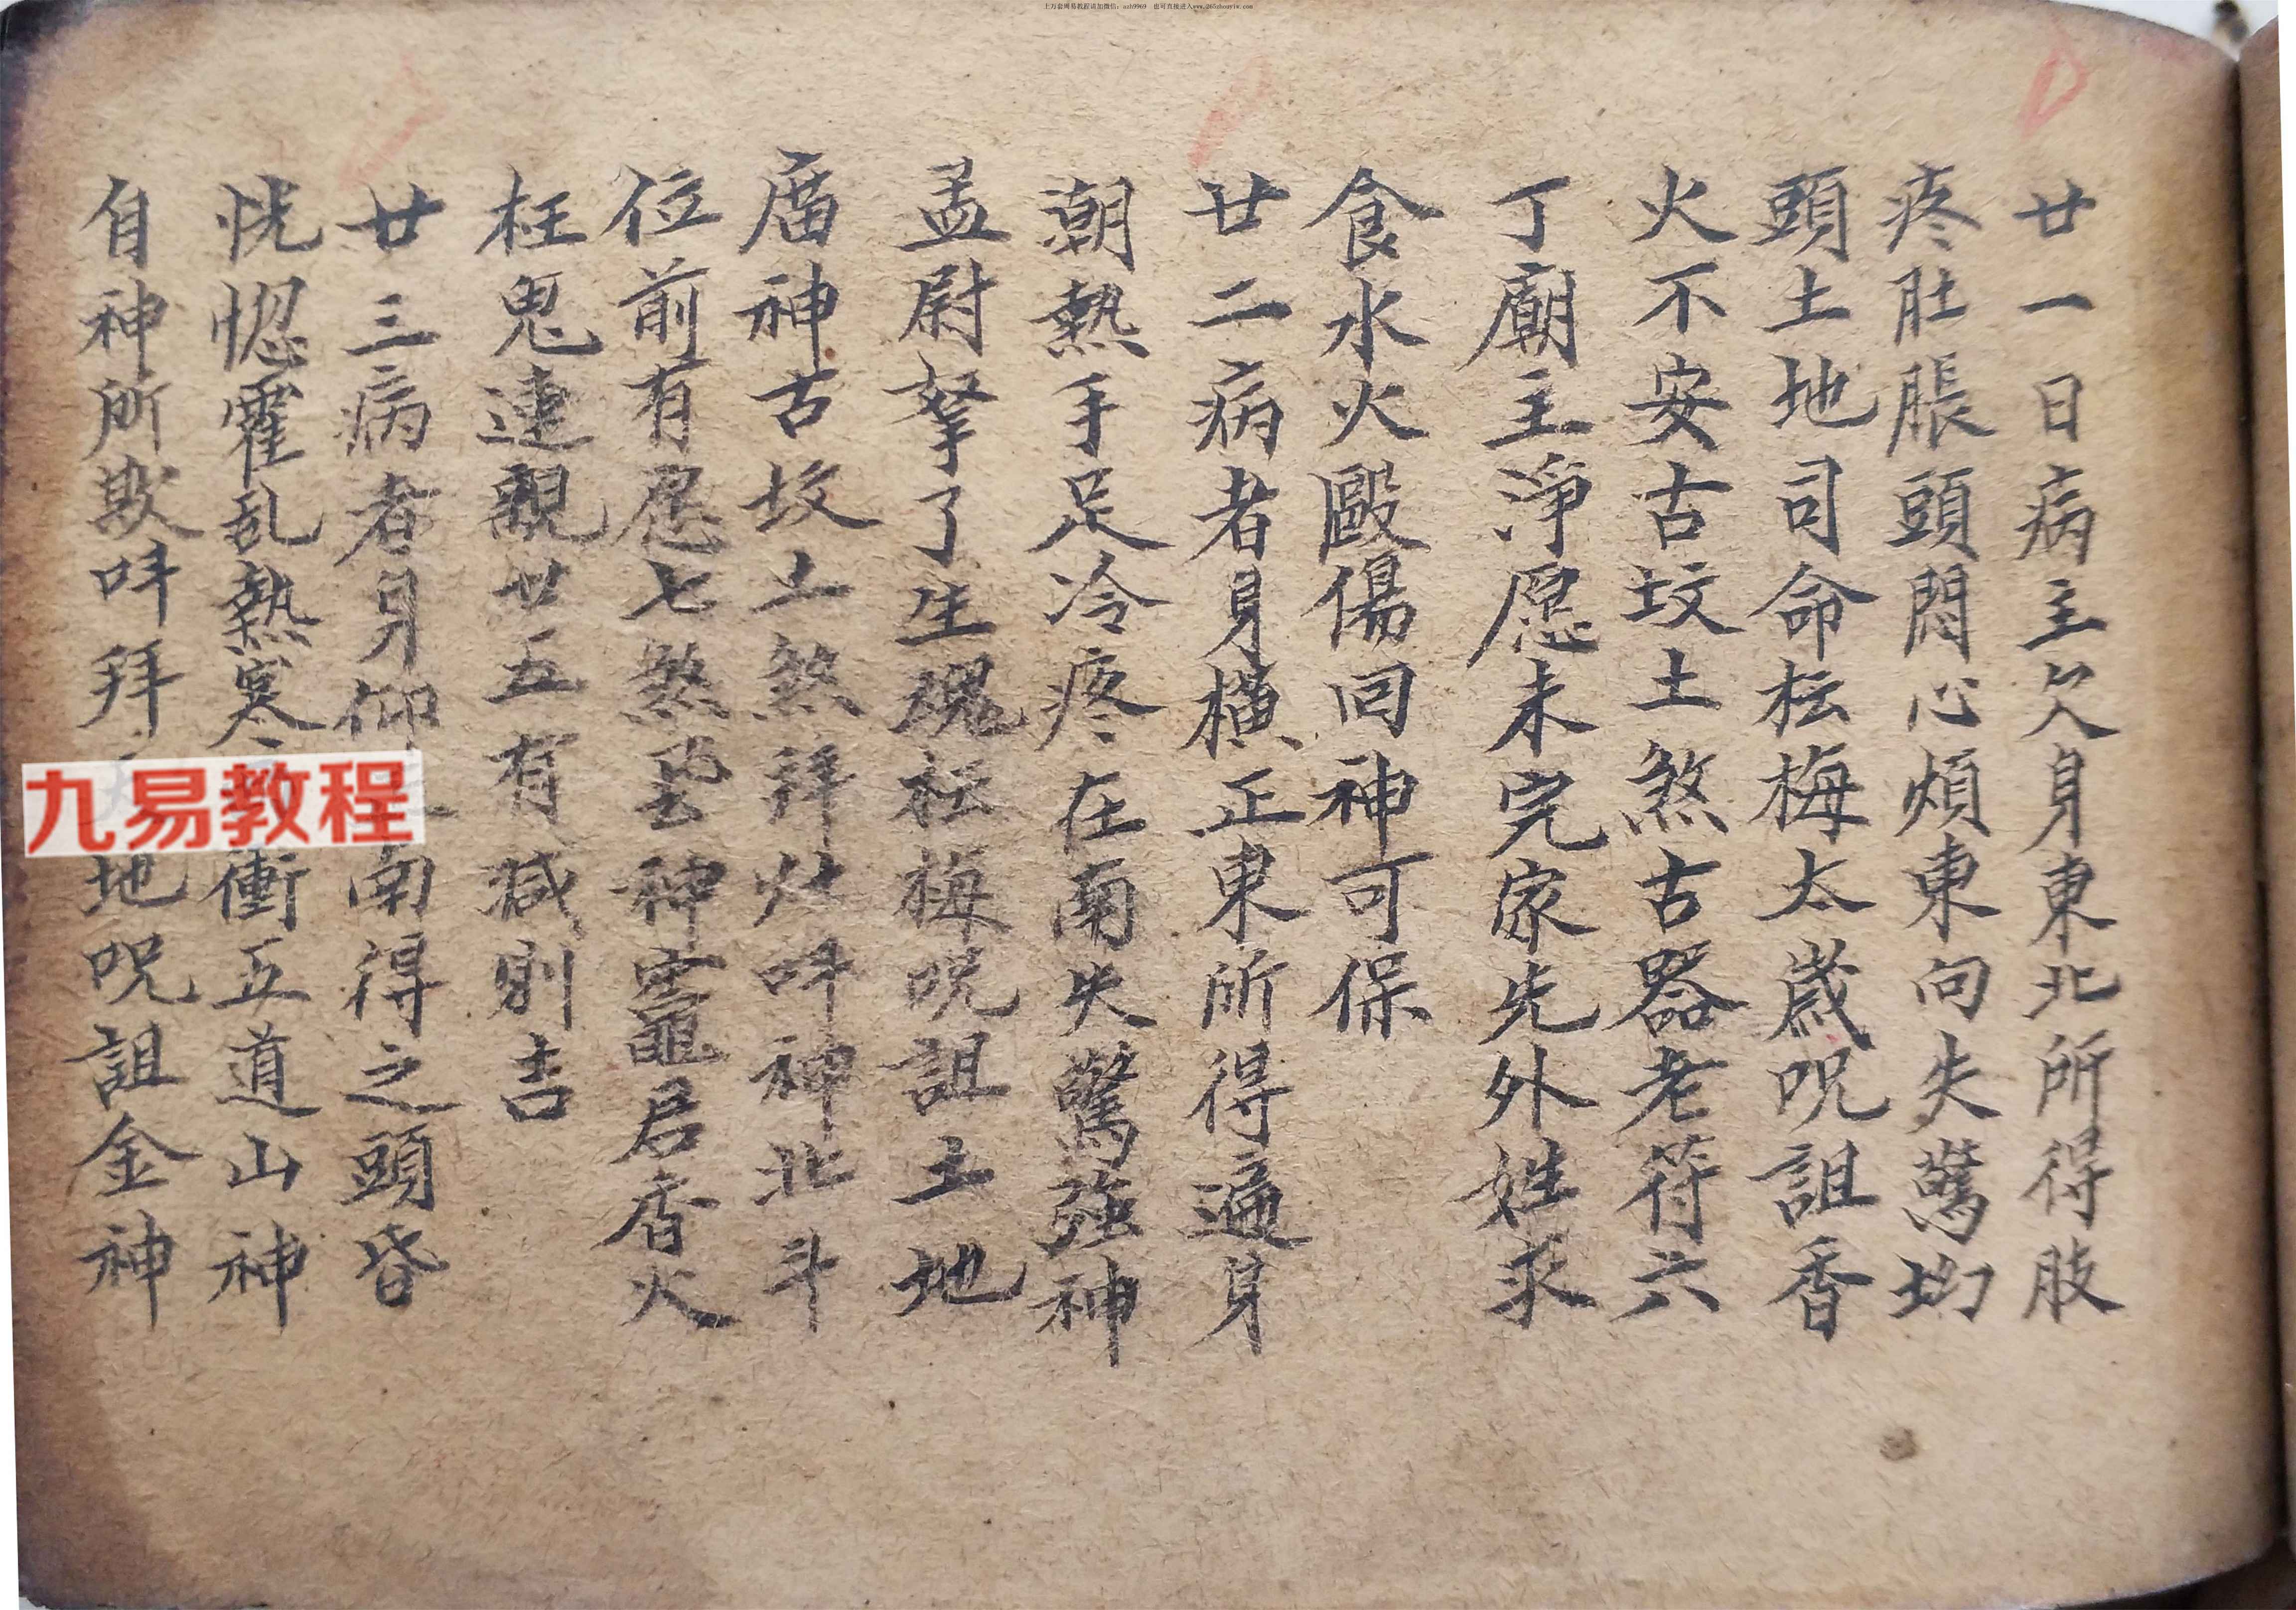 廿一日病主欠身東北所得肢
疼肚脹頭悶心煩東向失驚
頭土地司命枟梅太歲呪詛香
火不安古坟土煞古器老符六
丁廟主淨愿未完家先外姓求
食水火毆傷回神可保
廿二病者身橫正東所得遍身
潮熱手足冷疼在南失驚強神
孟尉拏了生魂枟梅呪詛土地
神古坟土煞拜灶呌神北斗
位前有愿七煞神竈君香火
枉鬼連親廿五有减則吉
廿三病者身仰南得之頭昏
恍惚霍乱熱寒衝五道山神
自神所欺呌拜地呪詛金神
九易教程